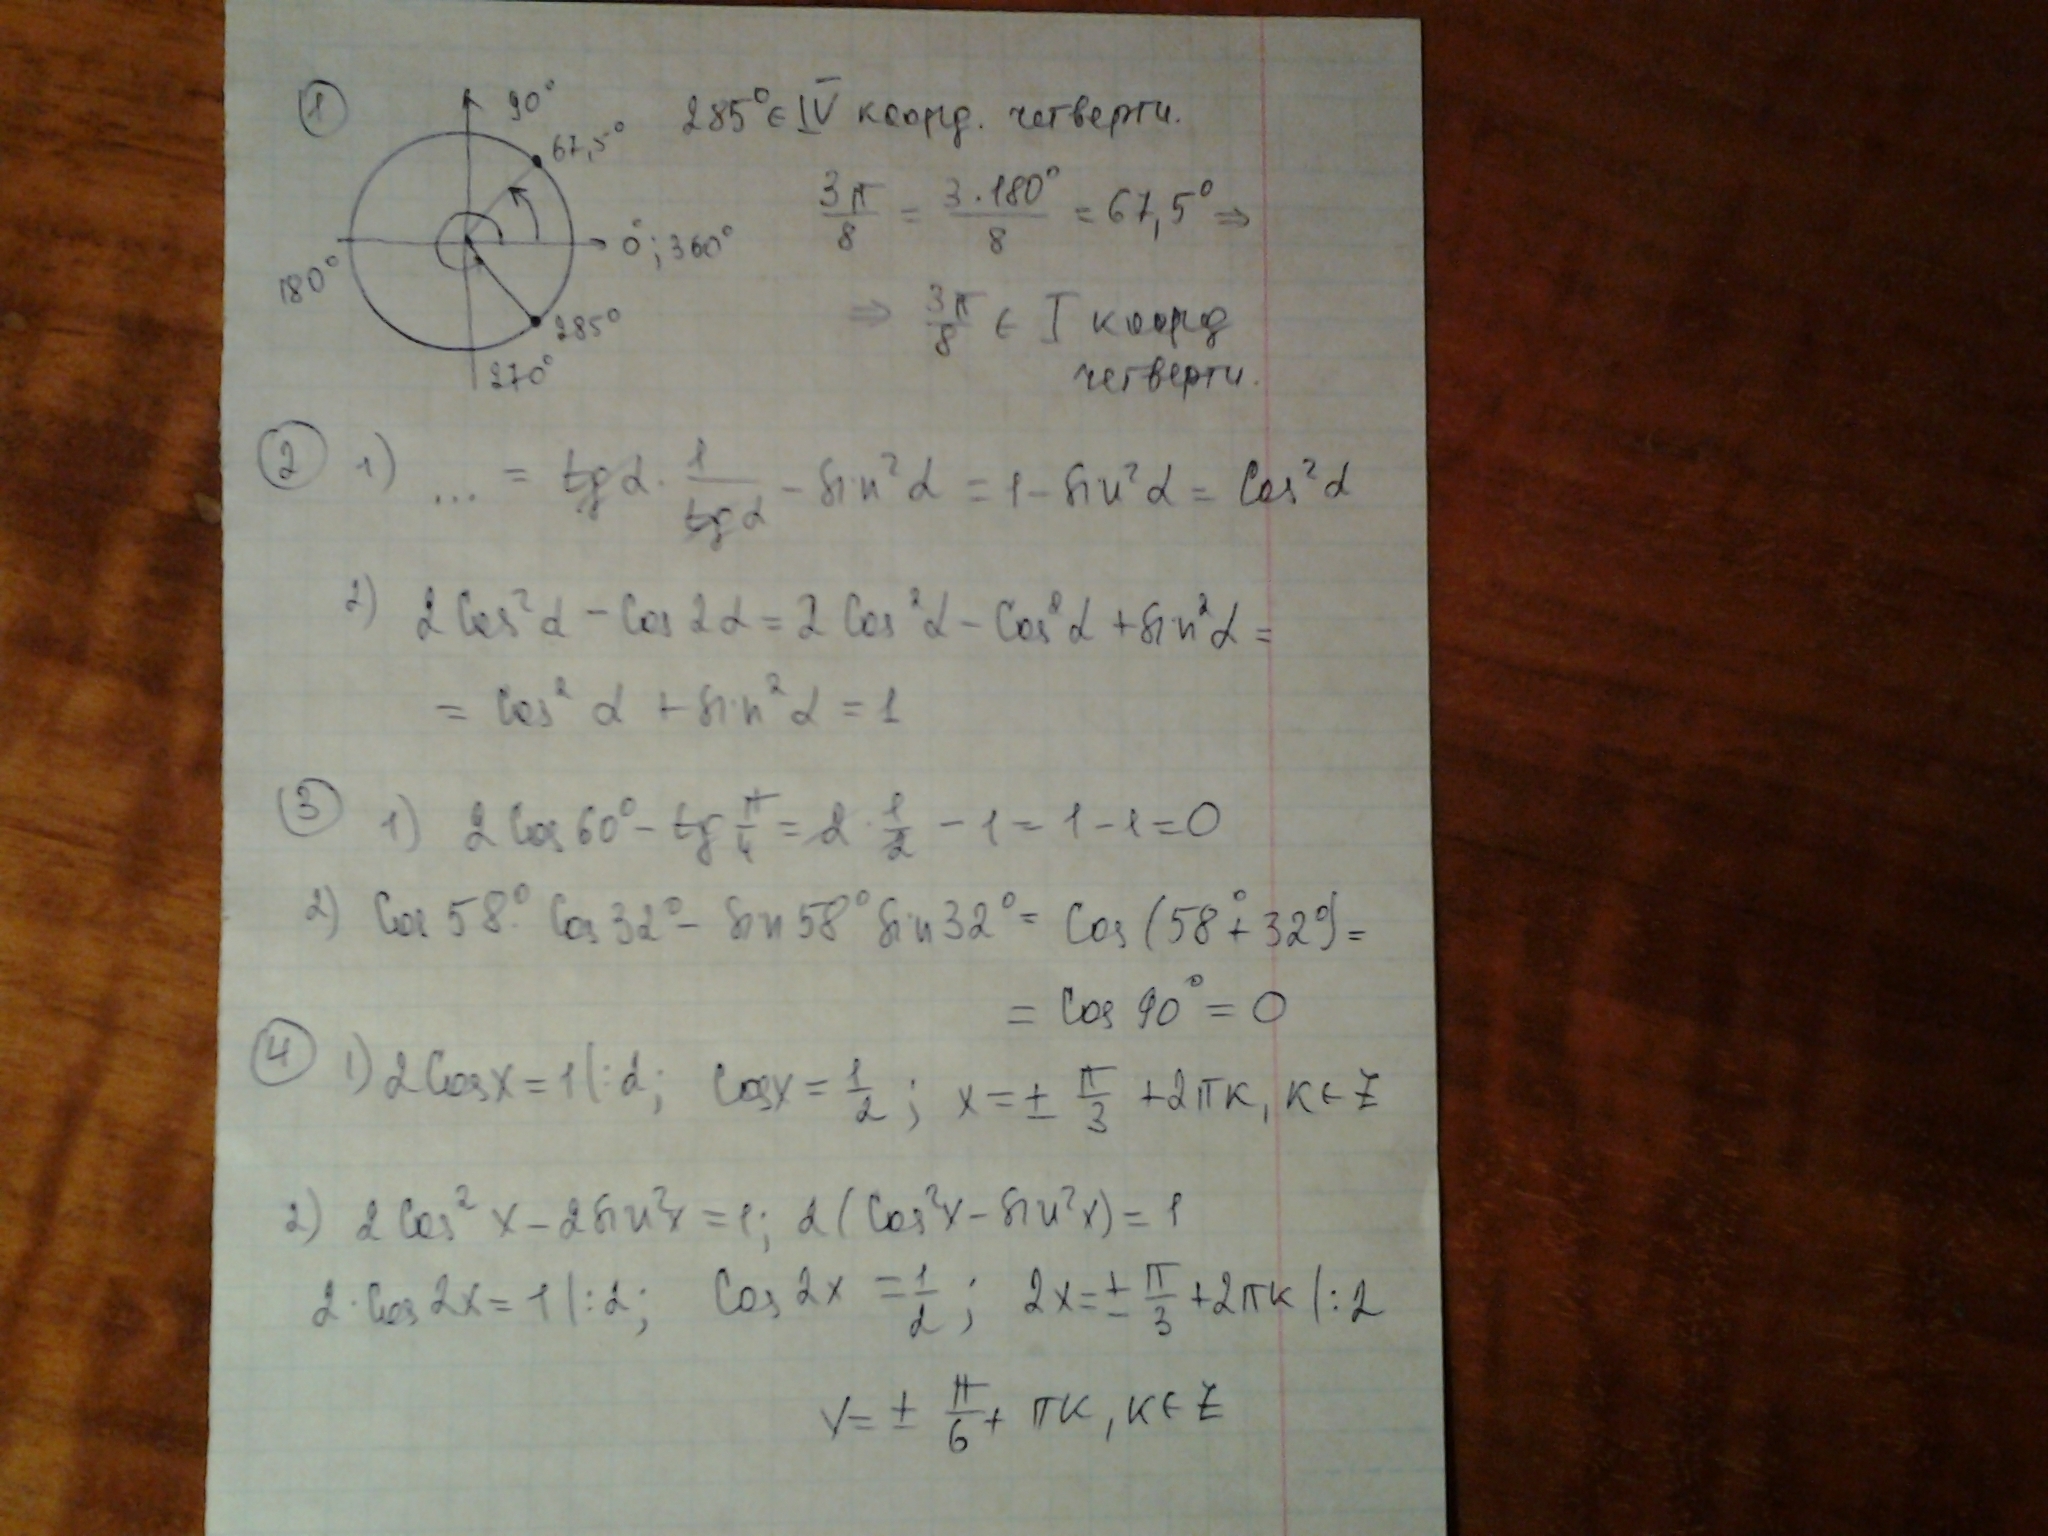 ① 90° 285° ∈ IV коорд. четверти.
67,5°
3π/8 = 3·180°/8 = 67,5° ⇒
0°; 360°
180°
⇒ 3π/8 ∈ I коорд
285°
четверти.
270°
② 1) ... = tg α · 1/tg α − sin²α = 1 − sin²α = cos²α
2) 2cos²α − cos2α = 2cos²α − cos²α + sin²α =
= cos²α + sin²α = 1
③ 1) 2cos60° − tg π/4 = 2 · 1/2 − 1 = 1 − 1 = 0
2) cos58° · cos32° − sin58° sin32° = cos(58° + 32°) =
= cos90° = 0
④ 1) 2cosx = 1 |:2; cosx = 1/2; x = ± π/3 + 2πк, к ∈ Z
2) 2cos²x − 2sin²x = 1; 2(cos²x − sin²x) = 1
2·cos2x = 1 |:2; cos2x = 1/2; 2x = ± π/3 + 2πк |:2
x = ± π/6 + πк, к ∈ Z